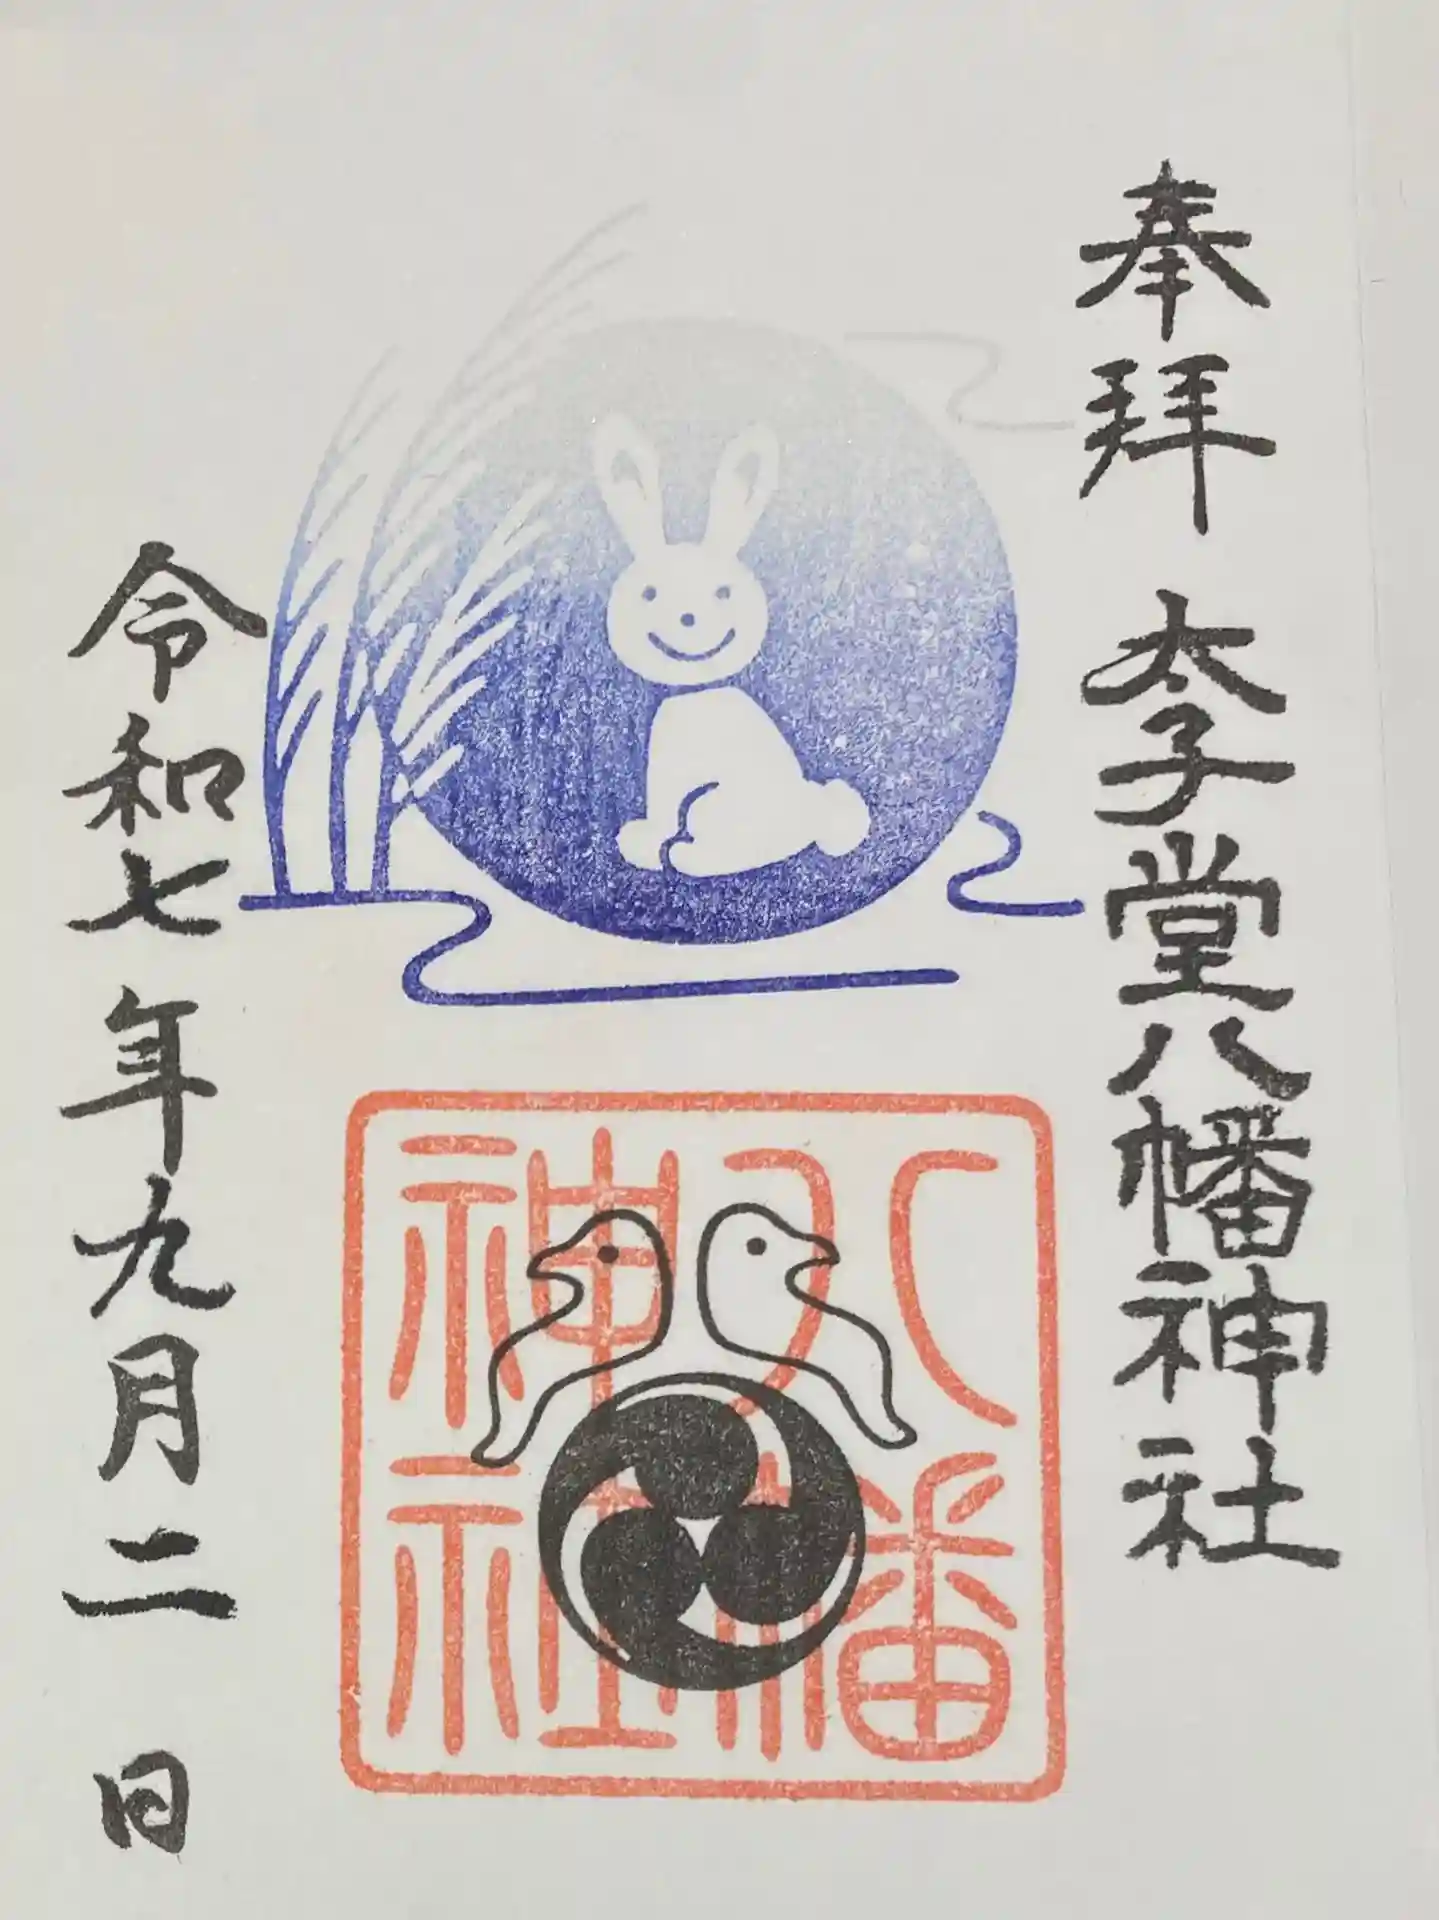 奉拝 太子堂八幡神社
八幡
神社
令和七年九月二日